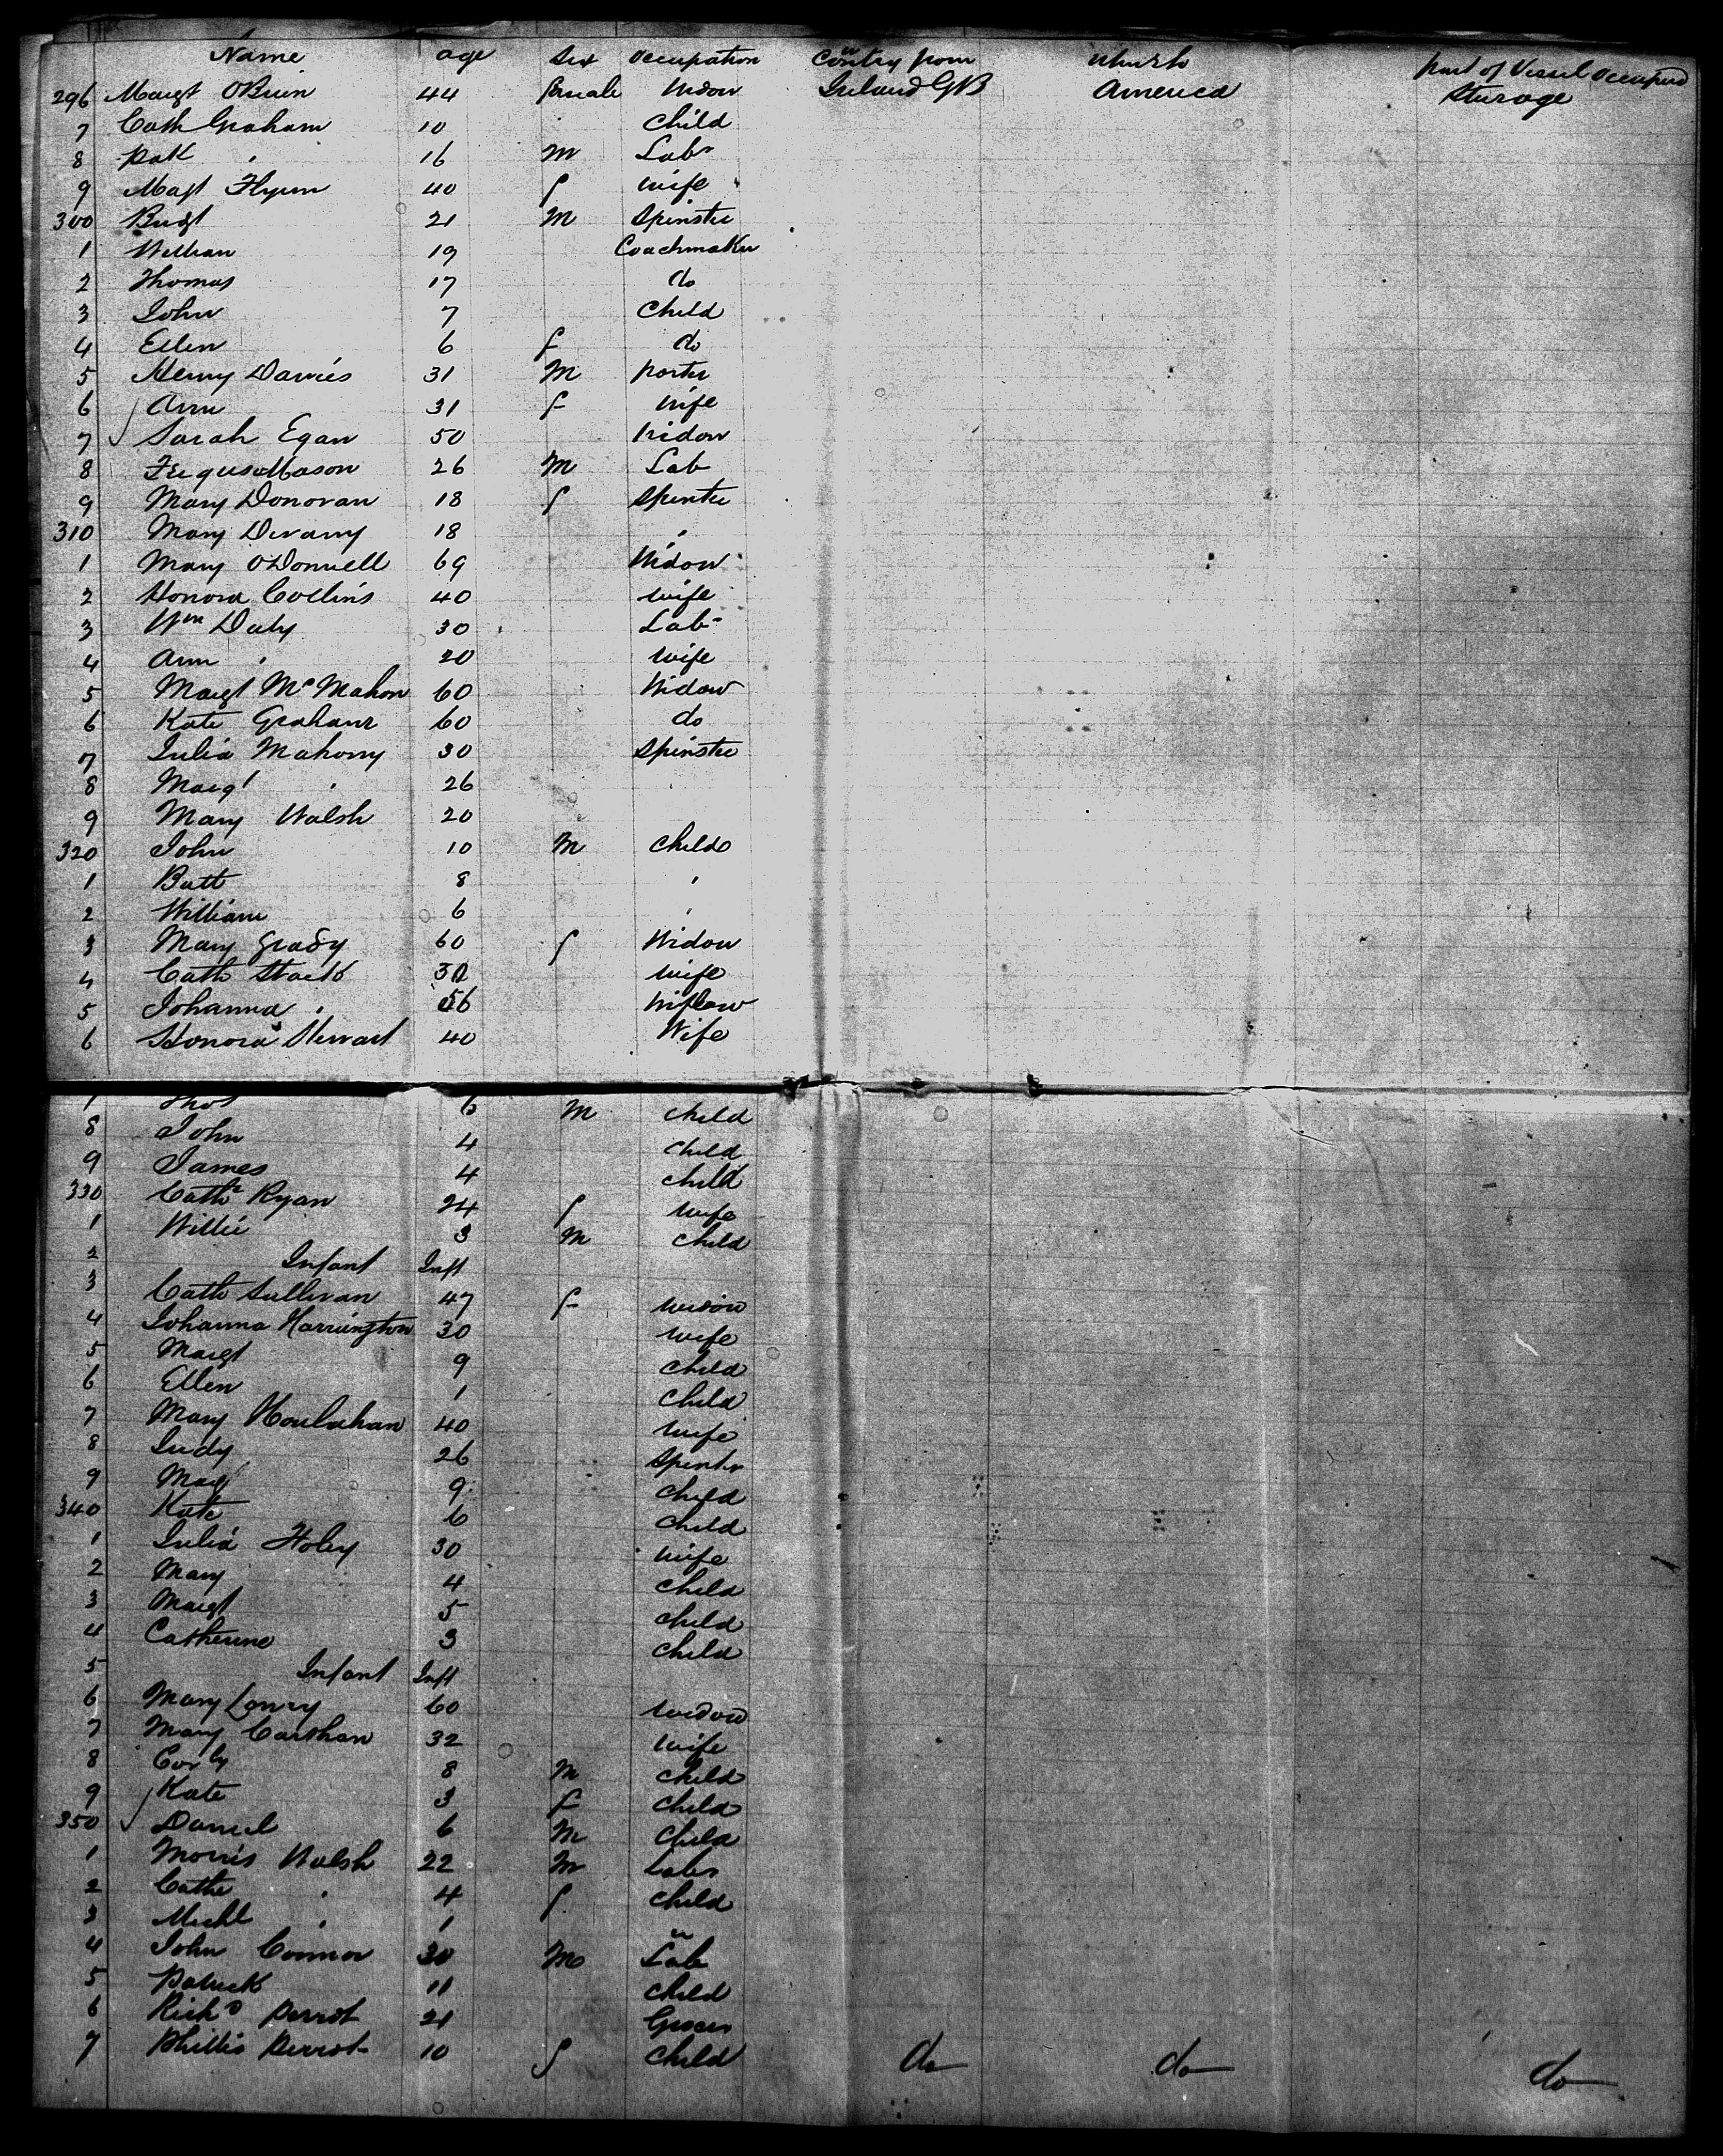 Name age Sex Occupation Contry from u which to part of Vessel occupied
296 Margt OBrien 44 female Widow Ireland GB America Sturage
7 Cath Graham 10 Child
8 Pat " 16 M Labr
9 Magt Flynn 40 f wife
300 Bridgt 21 M Spinster
1 William 19 Coachmaker
2 Thomas 17 do
3 John 7 Child
4 Ellen 6 f do
5 Henry Davies 31 M porter
6 Ann 31 f wife
7 Sarah Egan 50 Widow
8 Fergus Mason 26 M Lab
9 Mary Donovan 18 f Spinster
310 Mary Devany 18 "
1 Mary ODonnell 69 Widow
2 Honora Collins 40 wife
3 Wm Daly 30 Lab
4 Ann " 20 wife
5 Margt McMahon 60 Widow
6 Kate Graham 60 do
7 Julia Mahony 30 Spinster
8 Margt " 26
9 Mary Walsh 20
320 John 10 M Child
1 Batt 8 "
2 William 6 "
3 Mary Grady 60 f Widow
4 Cath Stack 30 wife
5 Johanna " 56 Widow
6 Honora Stewart 40 Wife
7 Thos 6 M Child
8 John 4 Child
9 James 4 Child
330 Cathe Ryan 24 f wife
1 Willie 3 M Child
2 Infant Inft
3 Cath Sullivan 47 f widow
4 Johanna Harrington 30 wife
5 Margt 9 Child
6 Ellen 1 Child
7 Mary Houlahan 40 wife
8 Judy 26 Spinster
9 Margt 9 Child
340 Kate 6 Child
1 Julia Foley 30 wife
2 Mary 4 Child
3 Margt 5 Child
4 Catherine 3 Child
5 Infant Inft
6 Mary Lowry 60 widow
7 Mary Carthan 32 wife
8 8 M Child
9 Kate 3 f Child
350 Daniel 6 M Child
1 Morris Walsh 22 M Labr
2 Cathe " 4 f Child
3 Michl " 1 "
4 John Connor 30 M Lab
5 Patrick 11 Child
6 Richd Perrot 21 Grocer
7 Phillis Perrot 10 f Child do do do